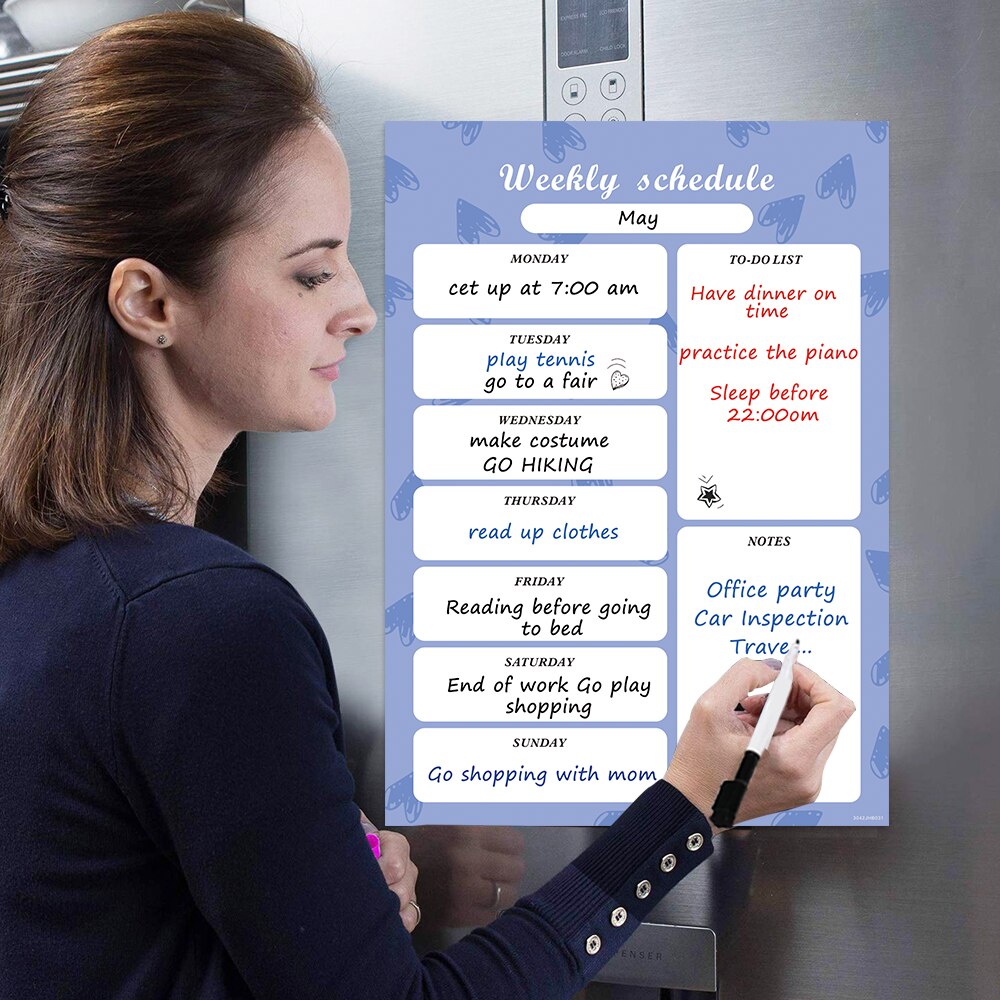 EXPRESS FRZ
ECO FRIENDLY
DOOR ALARM
CHILD LOCK
Weekly schedule
May
MONDAY
cet up at 7:00 am
TUESDAY
play tennis
go to a fair
WEDNESDAY
make costume
GO HIKING
THURSDAY
read up clothes
FRIDAY
Reading before going
to bed
SATURDAY
End of work Go play
shopping
SUNDAY
Go shopping with mom
TO-DO LIST
Have dinner on
time
practice the piano
Sleep before
22:00om
NOTES
Office party
Car Inspection
Trave...